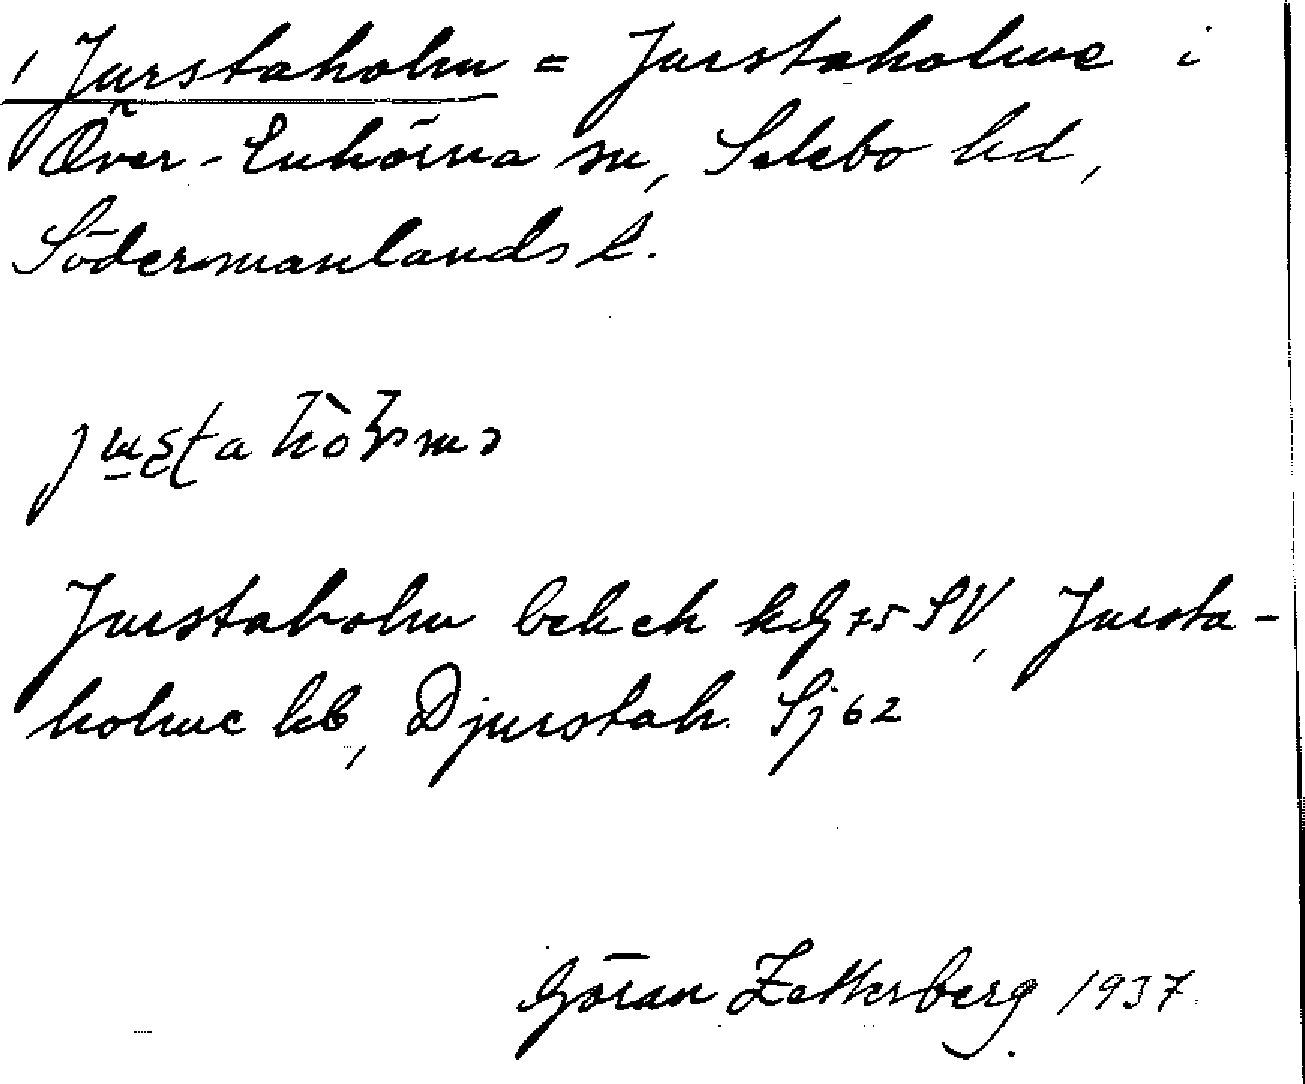 1 Jurstaholm = Jurstaholme i
Över-Enhörna sn, Selebo hd,
Södermanlands l.
Jurstaholm bebeh kG 75 SV, Jursta-
holme hb, Djurstah. Sj 62
Göran Zetterberg 1937.